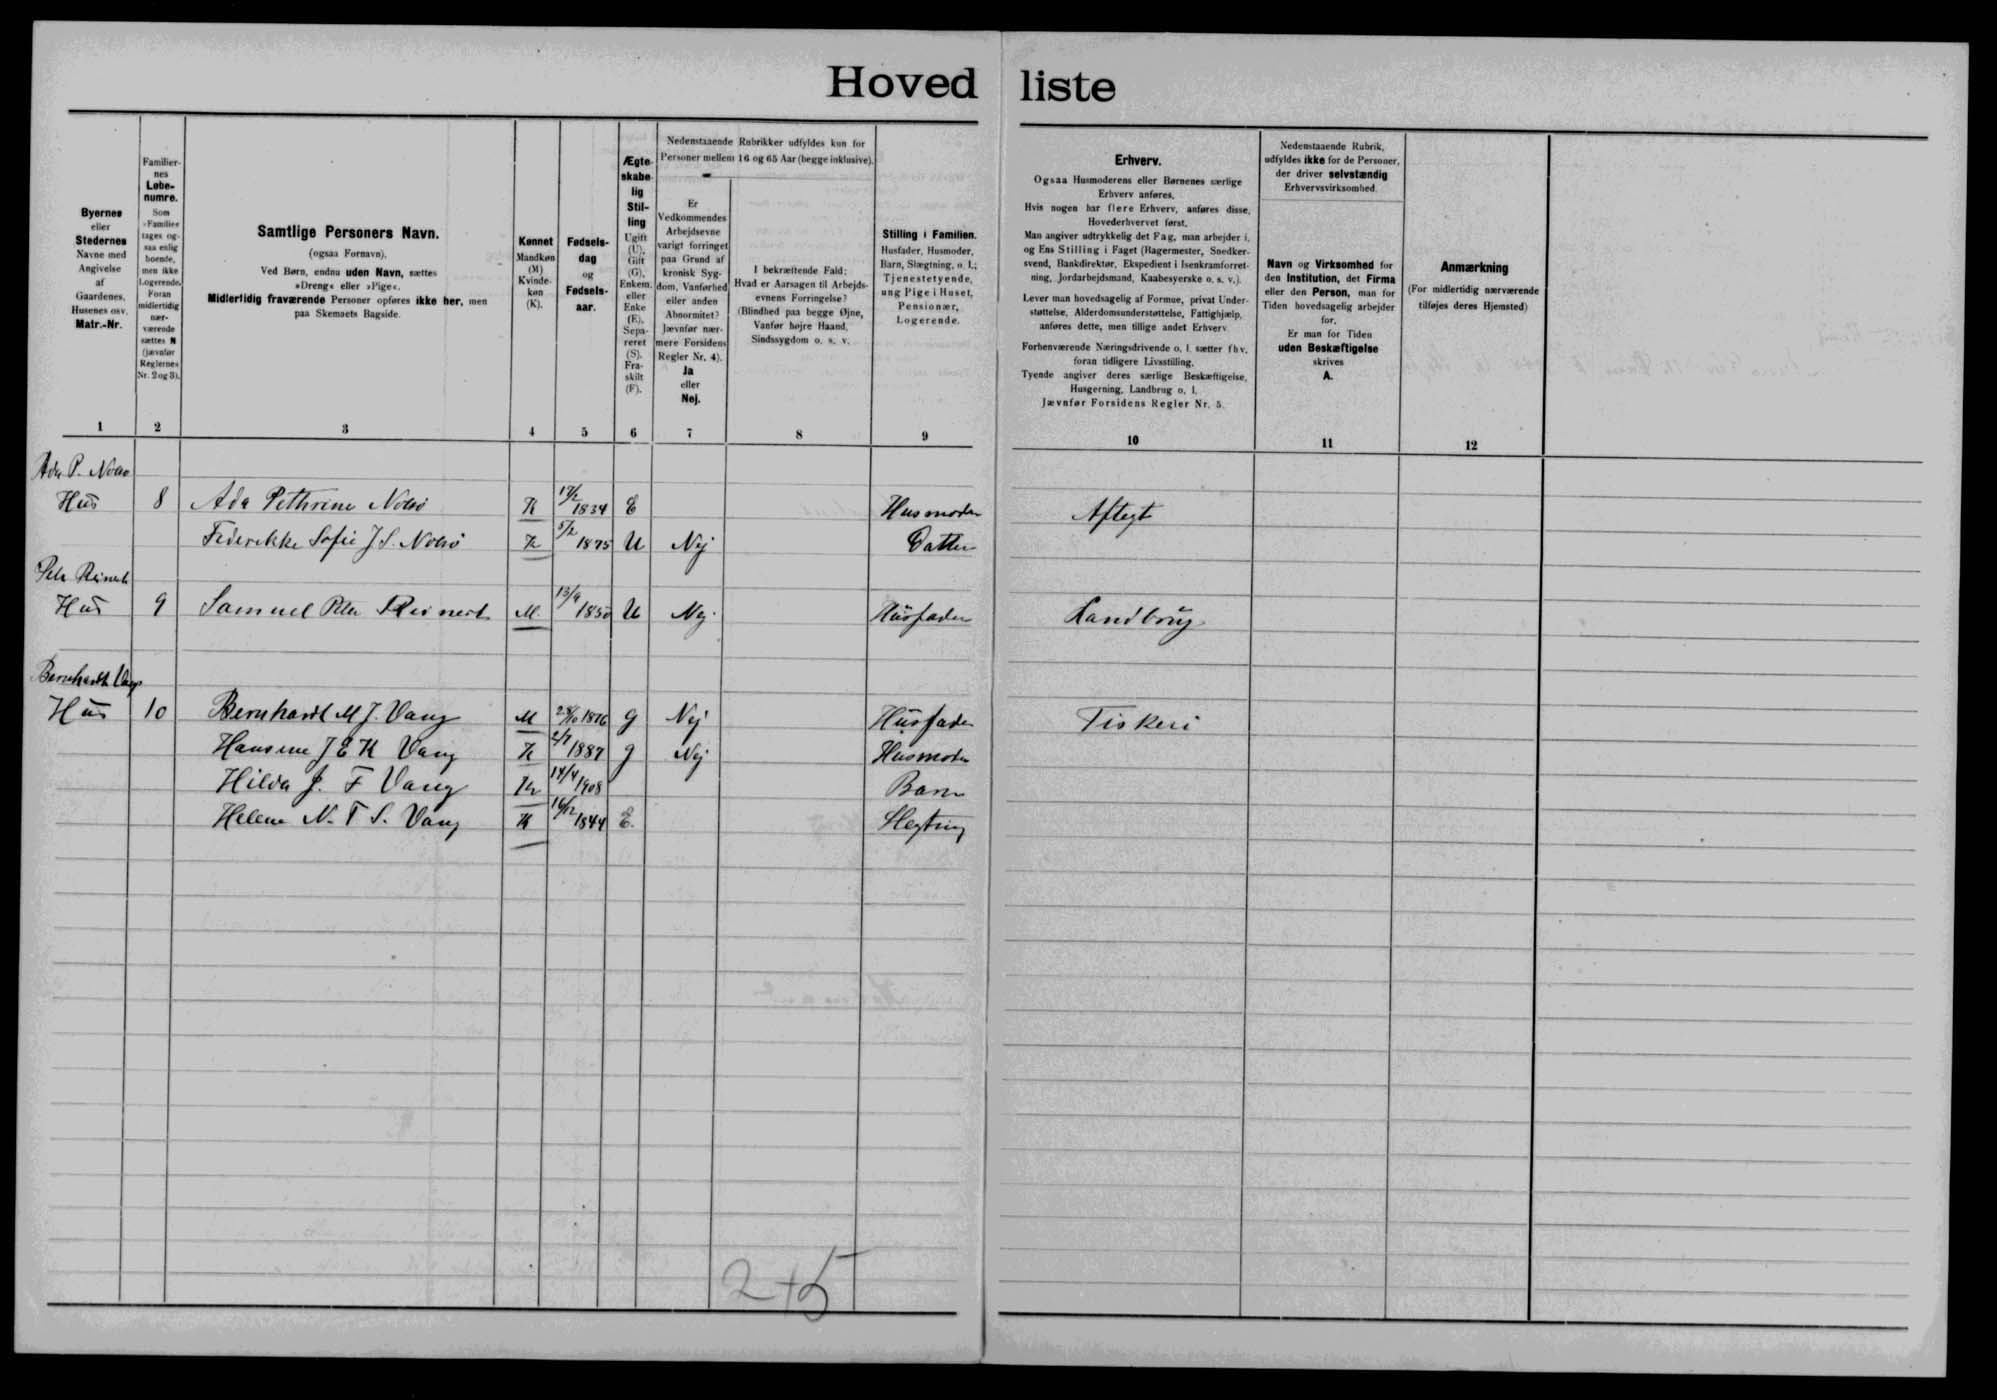 Hoved liste
Byernes
eller
Stedernes
Navne med
Angivelse
af
Gaardenes,
Husenes osv.
Matr.-Nr.
Familier-
nes
Løbe-
numre.
Som
»Familie«
tages og-
saa enlig
boende,
men ikke
Logerende.
Foran
midlertidig
nær-
værende
sættes N
(jævnfør
Reglernes
Nr. 2 og 3).
Samtlige Personers Navn.
(ogsaa Fornavn).
Ved Børn, endnu uden Navn, sættes
»Dreng« eller »Pige«.
Midlertidig fraværende Personer opføres ikke her, men
paa Skemaets Bagside.
Kønnet
Mandkøn
(M)
Kvinde-
køn
(K).
Fødsels-
dag
og
Fødsels-
aar.
Ægte-
skabe-
lig
Stil-
ling
Ugift
(U),
Gift
(G),
Enkem.
eller
Enke
(E),
Sepa-
reret
(S),
Fra-
skilt
(F).
Nedenstaaende Rubrikker udfyldes kun for
Personer mellem 16 og 65 Aar (begge inklusive).
Er
Vedkommendes
Arbejdsevne
varigt forringet
paa Grund af
kronisk Syg-
dom, Vanførhed
eller anden
Abnormitet?
Jævnfør nær-
mere Forsidens
Regler Nr. 4).
Ja
eller
Nej.
I bekræftende Fald:
Hvad er Aarsagen til Arbejds-
evnens Forringelse?
(Blindhed paa begge Øjne,
Vanfør højre Haand,
Sindssygdom o. s. v.
Stilling i Familien.
Husfader, Husmoder,
Barn, Slægtning, o. l.;
Tjenestetyende,
ung Pige i Huset,
Pensionær,
Logerende.
Erhverv.
Ogsaa Husmoderens eller Børnenes særlige
Erhverv anføres.
Hvis nogen har flere Erhverv, anføres disse,
Hovederhvervet først.
Man angiver udtrykkelig det Fag, man arbejder i,
og Ens Stilling i Faget (Bagermester, Snedker-
svend, Bankdirektør, Ekspedient i Isenkramforret-
ning, Jordarbejdsmand, Kaabesyerske o. s. v.).
Lever man hovedsagelig af Formue, privat Under-
støttelse, Alderdomsunderstøttelse, Fattighjælp,
anføres dette, men tillige andet Erhverv.
Forhenværende Næringsdrivende o. l. sætter fhv.
foran tidligere Livsstilling.
Tyende angiver deres særlige Beskæftigelse,
Husgerning, Landbrug o. l.
Jævnfør Forsidens Regler Nr. 5.
Nedenstaaende Rubrik,
udfyldes ikke for de Personer,
der driver selvstændig
Erhvervsvirksomhed.
Navn og Virksomhed for
den Institution, det Firma
eller den Person, man for
Tiden hovedsagelig arbejder
for.
Er man for Tiden
uden Beskæftigelse
skrives
A.
Anmærkning
(For midlertidig nærværende
tilføjes deres Hjemsted)
1 2 3 4 5 6 7 8 9 10 11 12
Ada P. Nolsø
Hus 8 Ada Pethrine Nolsø K 17/2 1834 E Husmoder Aftegt
Federikke Sofie J. S. Nolsø K 5/2 1875 U Nej Datter
Peter Reinert
Hus 9 Samuel Peter Reinert M. 13/9 1850 U Nej Husfader Landbrug
Bernhardt Vang
Hus 10 Bernhardt M J. Vang M 28/10 1876 G Nej Husfader Fiskeri
Hansine J E K Vang K 2/7 1887 G Nej Husmoder
Hilda J. F Vang K 14/4 1908 Barn
Helene N. T S. Vang K 16/12 1844 E. Slegtning
2+5